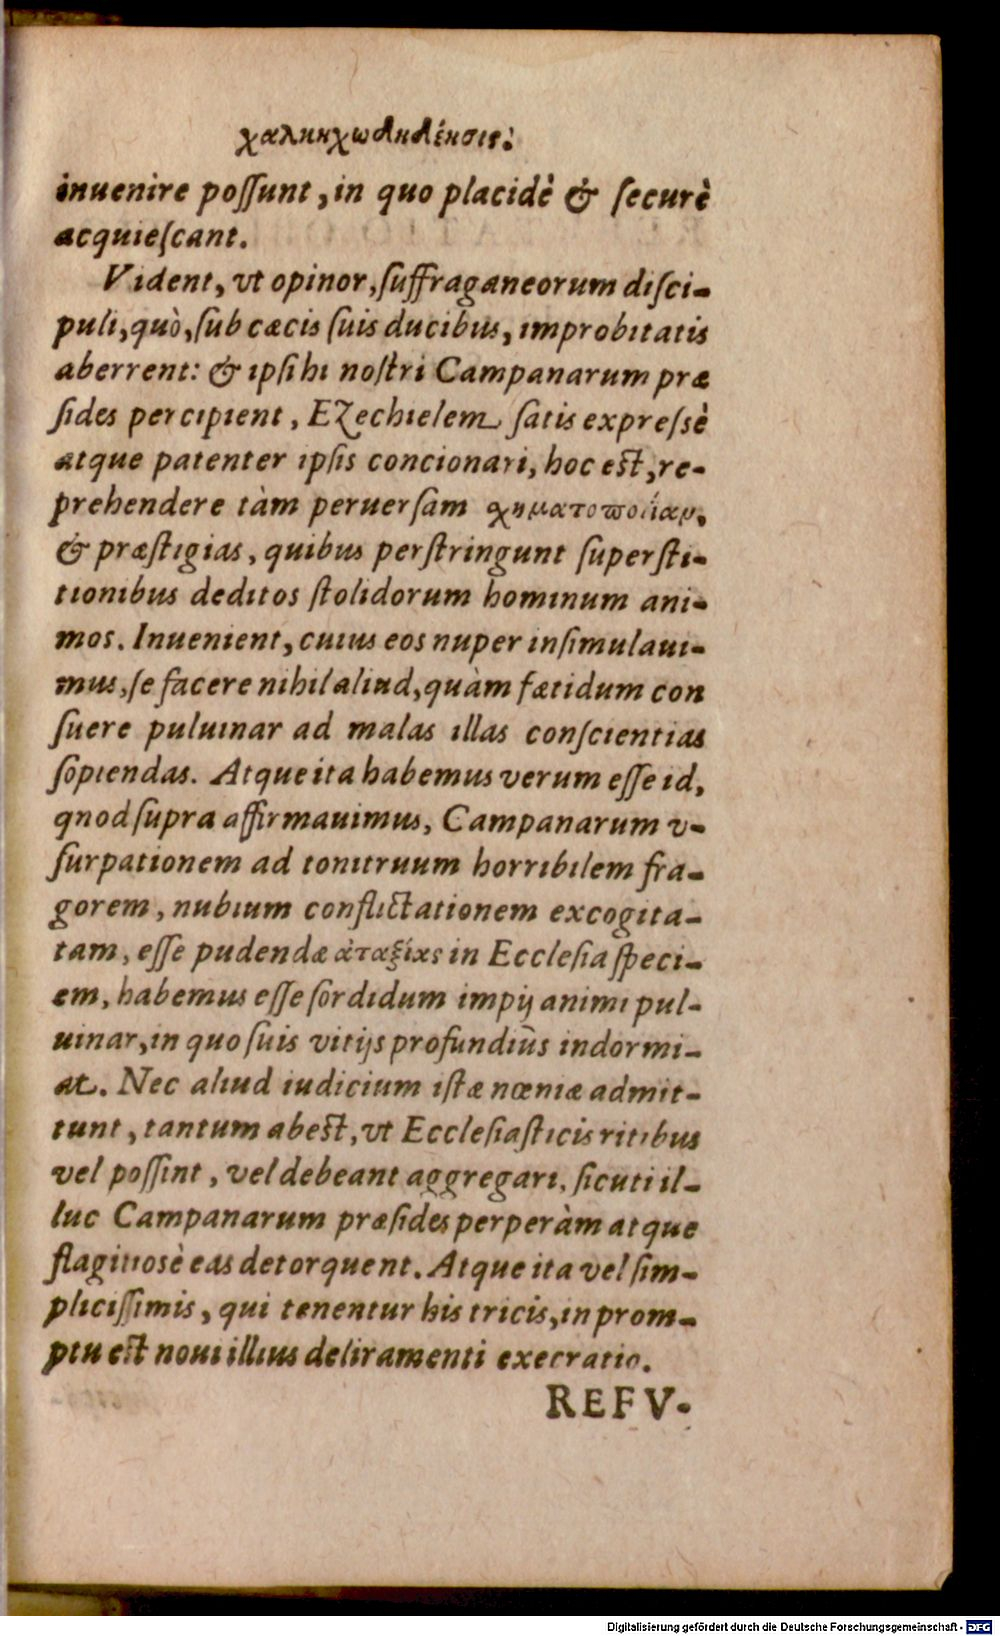 inuenire poſſunt, in quo placidè & ſecurè
acquieſcant.
Vident, vt opinor, ſuffraganeorum diſci-
puli, quò, ſub cæcis ſuis ducibus, improbitatis
aberrent: & ipſihi noſtri Campanarum præ
ſides percipient, Ezechielem ſatis expreſsè
atque patenter ipſis concionari, hoc eſt, re-
prehendere tàm peruerſam
& præſtigias, quibus perſtringunt ſuperſti-
tionibus deditos ſtolidorum hominum ani-
mos. Inuenient, cuius eos nuper inſimulaui-
mus, ſe facere nihil aliud, quàm fætidum con
ſuere puluinar ad malas illas conſcientias
ſopiendas. Atque ita habemus verum eſſe id,
qnod ſupra affirmauimus, Campanarum v-
ſurpationem ad tonitruum horribilem fra-
gorem, nubium conflictationem excogita-
tam, eſſe pudendæ ἀταξίας in Eccleſia ſpeci-
em, habemus eſſe ſordidum impij animi pul-
uinar, in quo ſuis vitijs profundiùs indormi-
at. Nec aliud iudicium iſtæ nœniæ admit-
tunt, tantum abeſt, vt Eccleſiaſticis ritibus
vel poſſint, vel debeant aggregari, ſicuti il-
luc Campanarum præſides perperàm atque
flagitiosè eas detorquent. Atque ita vel ſim-
pliciſſimis, qui tenentur his tricis, in prom-
ptu eſt noui illius deliramenti execratio.
REFV-
Digitalisierung gefördert durch die Deutsche Forschungsgemeinschaft - DFG